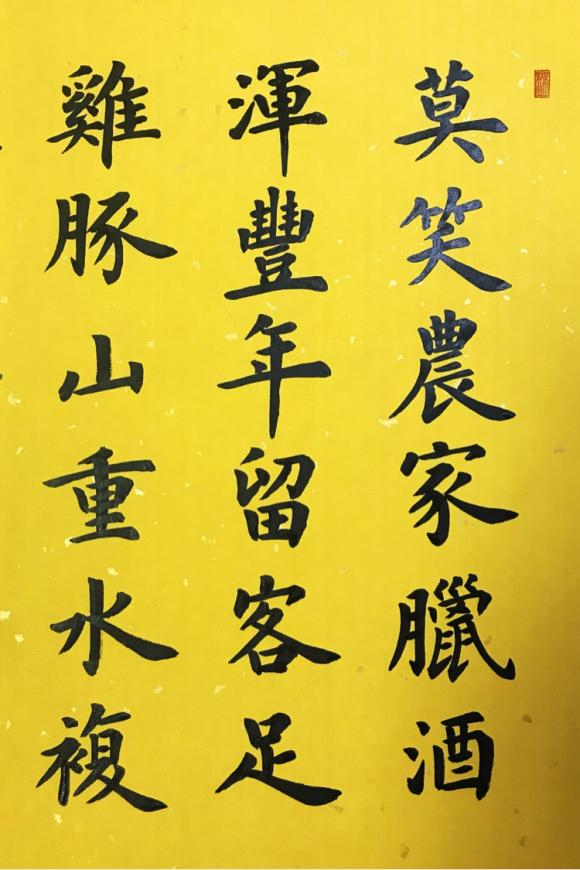 莫笑農家臘酒
渾豐年留客足
雞豚山重水複